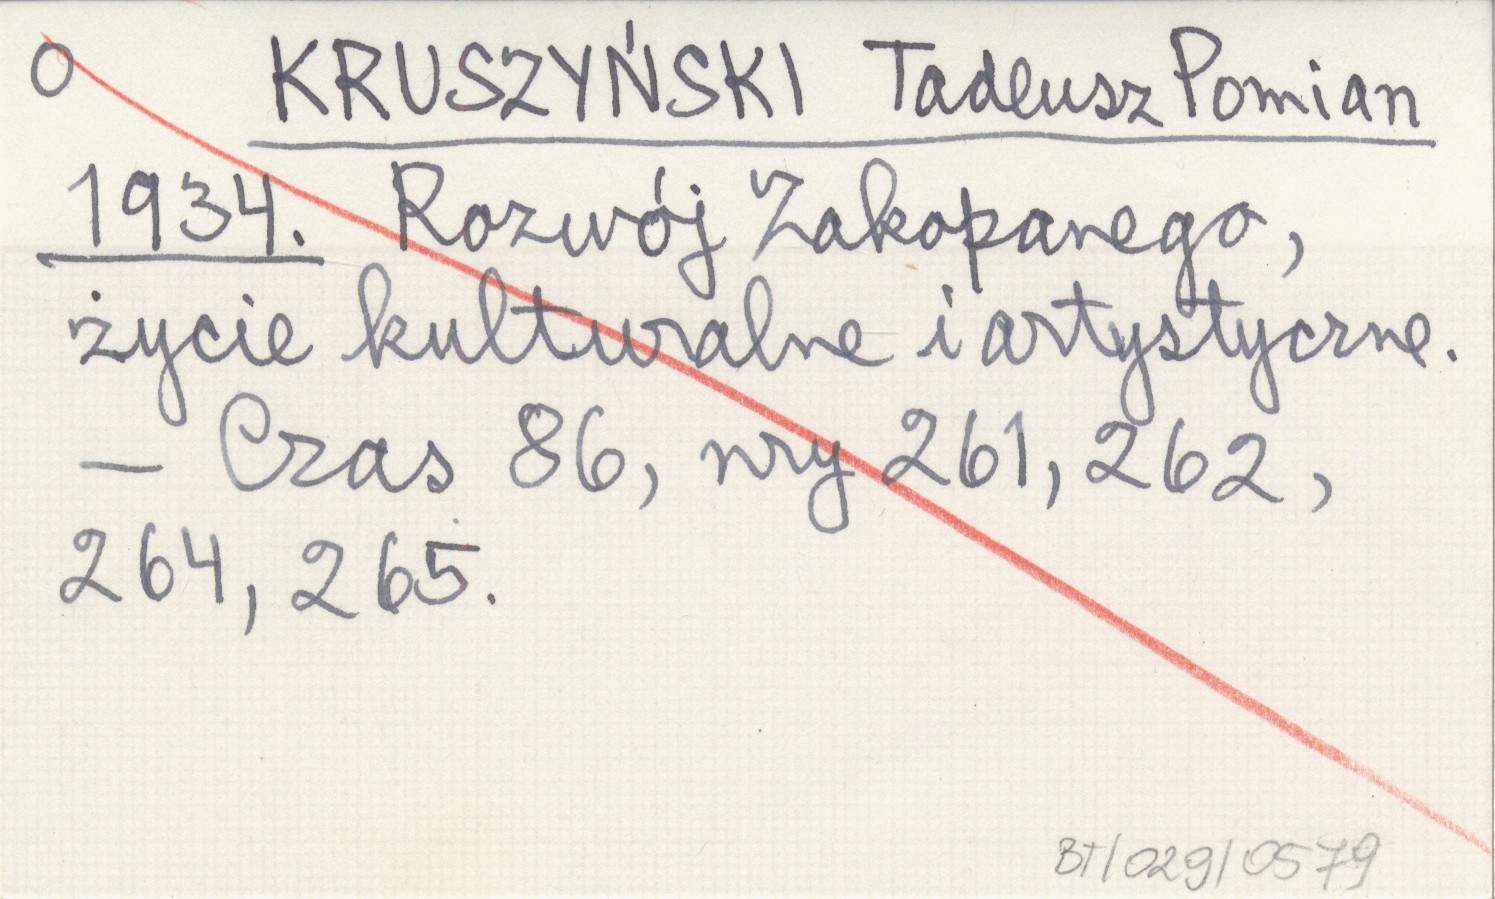 O KRUSZYŃSKI Tadeusz Pomian
1934. Rozwój Zakopanego,
życie kulturalne i artystyczne.
— Czas 86, nry 261, 262,
264, 265.
BT/029/0579